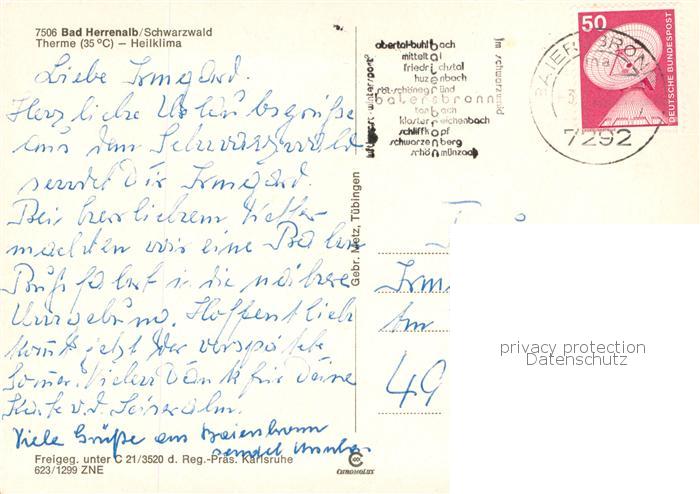 7506 Bad Herrenalb/Schwarzwald
Therme (35 °C) — Heilklima
Liebe Irmgard.
Herzliche Urlaubsgrüße
aus dem Schwarzwald
sendet Dir Irmgard.
Bei herrlichem Wetter
machten wir eine
in die nähere
Umgebung. Hoffentlich
kommt jetzt der verspätete
Sommer. Vielen Dank für Deine
Karte v. d.
Viele Grüße aus Baiersbronn
sendet
Freigeg. unter C 21/3520 d. Reg.-Präs. Karlsruhe
623/1299 ZNE
Gebr. Metz, Tübingen
CHROMOLUX
obertal-buhlbach
mitteltal
friedrichstal
huzenbach
röt-schönegründ
baiersbronn
tonbach
klosterreichenbach
schliffkopf
schwarzenberg
schönmünzach
im schwarzwald
luftkurort
wintersport
BAIERSBRONN 1
7292
50
DEUTSCHE BUNDESPOST
49
privacy protection
Datenschutz